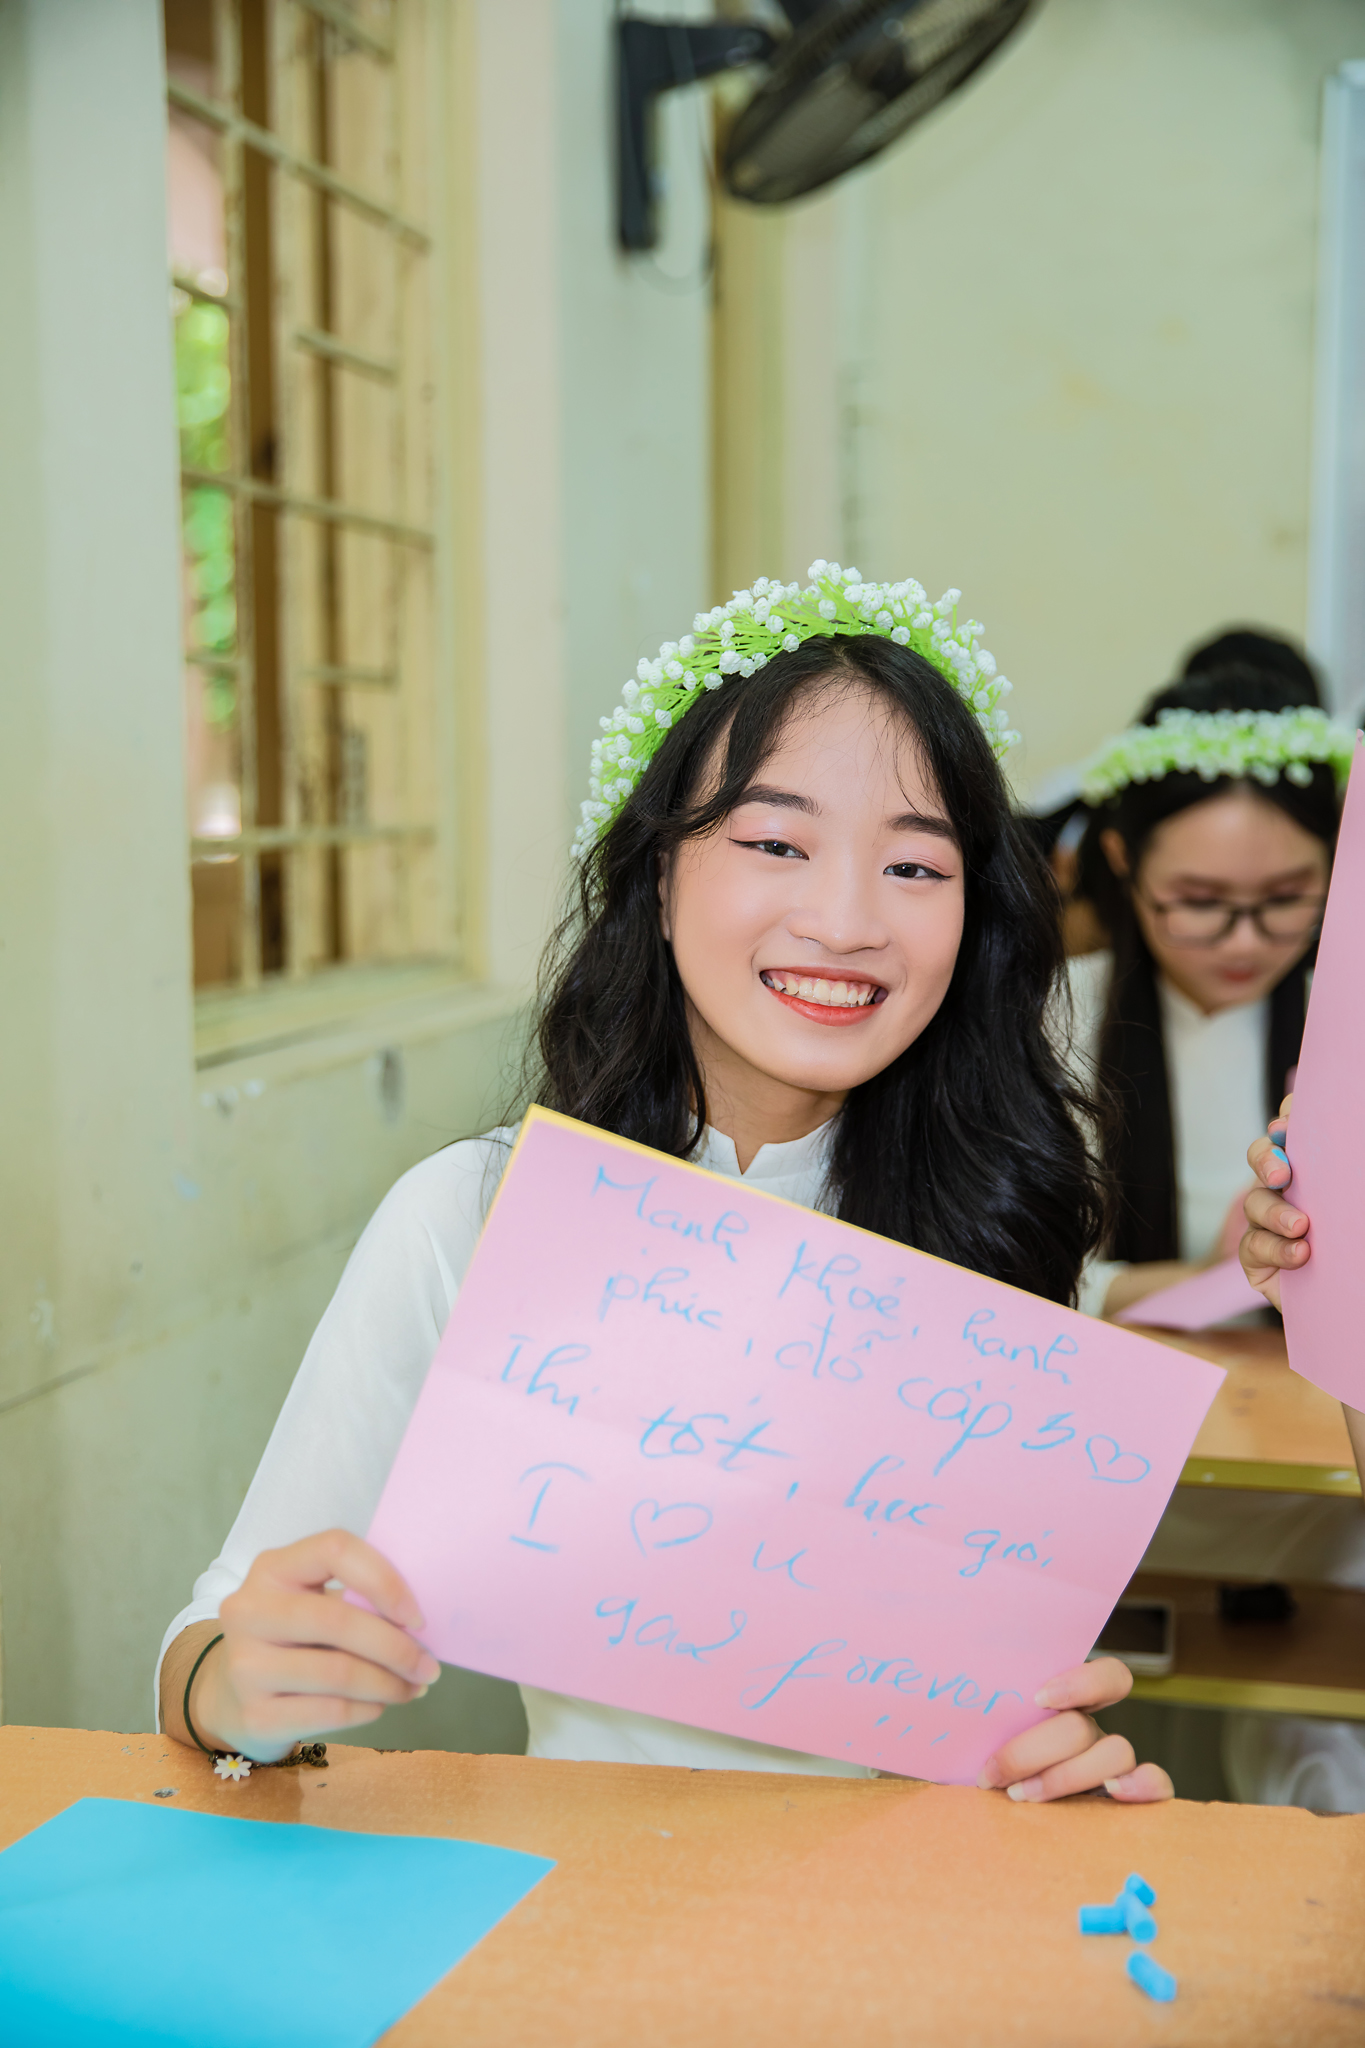 Mạnh khỏe, hạnh
phúc, đỗ cấp 3 ♡
Thi tốt, học giỏi
I ♡ u
gad forever
!!!